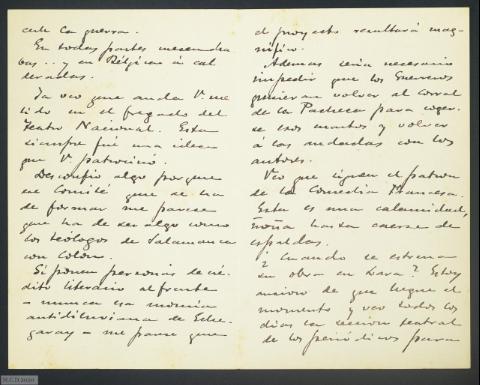 ante la guerra.
En todas partes
bas... y en Bélgica á cal
deradas.
Ya veo que anda V. me
tido en el fregado del
Teatro Nacional. Esta
siempre fué una idea
que V. patrocinó.
Desconfío algo porque
ese Comité que se ha
de formar me parece
que ha de ser algo como
los teólogos de Salamanca
con Colón.
Si ponen personas de cré-
dito literario al frente
- nunca esa momia
antidiluviana de Eche-
garay - me parece que
el proyecto resultará mag-
nífico.
Además sería necesario
impedir que los Guerreros
pudieran volver al corral
de la Pacheca para coger-
se esos montes y volver
á las andadas con los
autores.
Veo que siguen el patron
de la Comedia Francesa.
Esta es una calamidad,
ñoña hasta caerse de
espaldas.
¿Cuando se estrena
su obra en Lara? Estoy
ansioso de que llegue el
momento y veo todos los
dias la seccion teatral
de los periódicos para
M.C.D. 2020